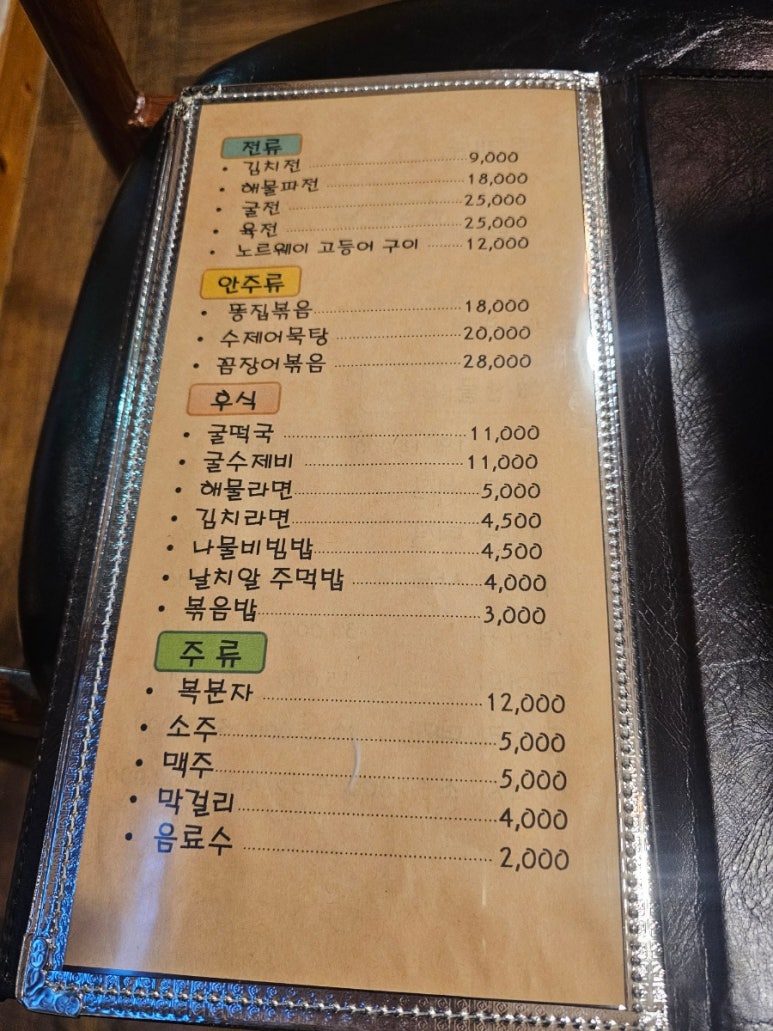 전류
• 김치전 9,000
• 해물파전 18,000
• 굴전 25,000
• 육전 25,000
• 노르웨이 고등어 구이 12,000
안주류
• 똥집볶음 18,000
• 수제어묵탕 20,000
• 꼼장어볶음 28,000
후식
• 굴떡국 11,000
• 굴수제비 11,000
• 해물라면 5,000
• 김치라면 4,500
• 나물비빔밥 4,500
• 날치알 주먹밥 4,000
• 볶음밥 3,000
주류
• 복분자 12,000
• 소주 5,000
• 맥주 5,000
• 막걸리 4,000
• 음료수 2,000